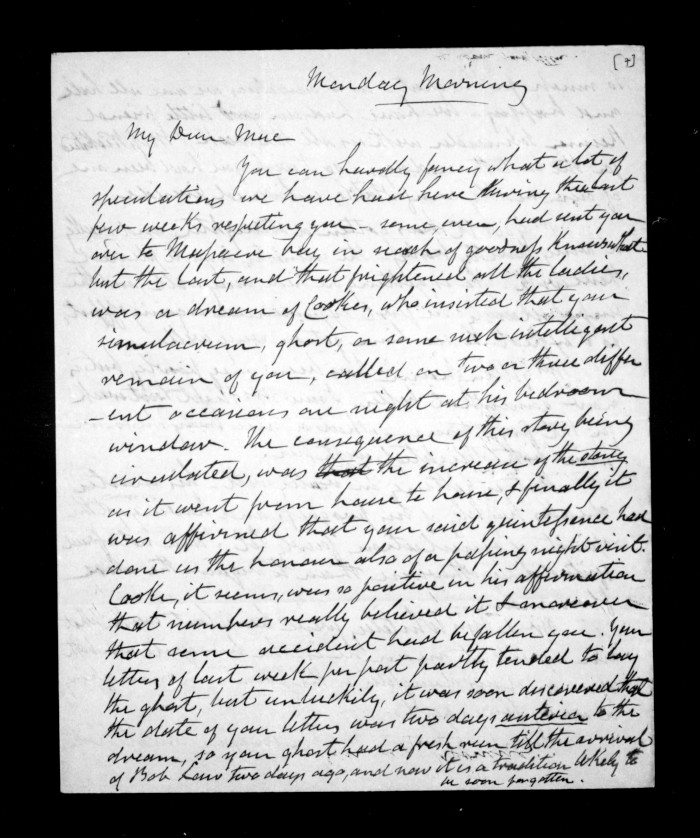 [4]
Monday Morning
My Dear Mac
You can hardly fancy what a lot of
speculations we have had here during the last
few weeks respecting you - some, even, had sent you
over to Massacre bay in search of goodness knows what
but the last, and that frightened all the ladies,
was a dream of Cooke's, who insisted that your
simulacrum, ghost, or some such intelligent
remain of you, called on two or three differ
-ent occasions one night at his bedroom
window. The consequence of this story being
circulated, was that the increase of the story
as it went from house to house, & finally it
was affirmed that your said quintessence had
done us the honour also of a passing night visit.
Cooke, it seems, was so positive in his affirmation
that numbers really believed it & moreover
that some accident had befallen you. Your
letters of last week per post partly tended to lay
the ghost, but unluckily, it was soon discovered that
the date of your letters was two days anterior to the
dream, so your ghost had a fresh run till the arrival
of Bob Law two days ago, and now it is a tradition likely to
be soon forgotten.